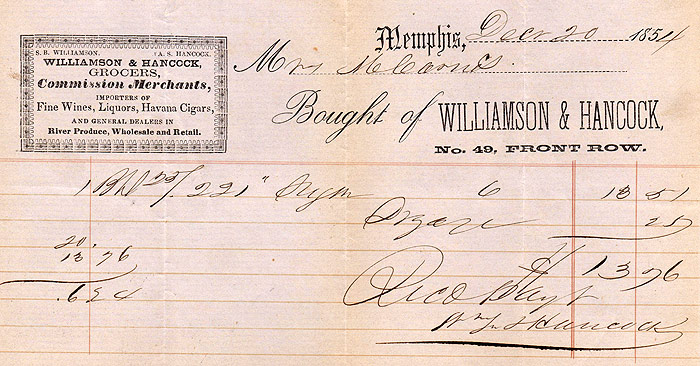 S. B. WILLIAMSON. A. S. HANCOCK.
WILLIAMSON & HANCOCK,
GROCERS,
Commission Merchants,
IMPORTERS OF
Fine Wines, Liquors, Havana Cigars,
AND GENERAL DEALERS IN
River Produce, Wholesale and Retail.
Memphis, Decr 20 1854
Mrs
Bought of WILLIAMSON & HANCOCK,
No. 49, FRONT ROW.
1 221 " 6 13 51
Drayage 25
$ 13 76
20.
13 76
6 24
Recd Payt
Hancock